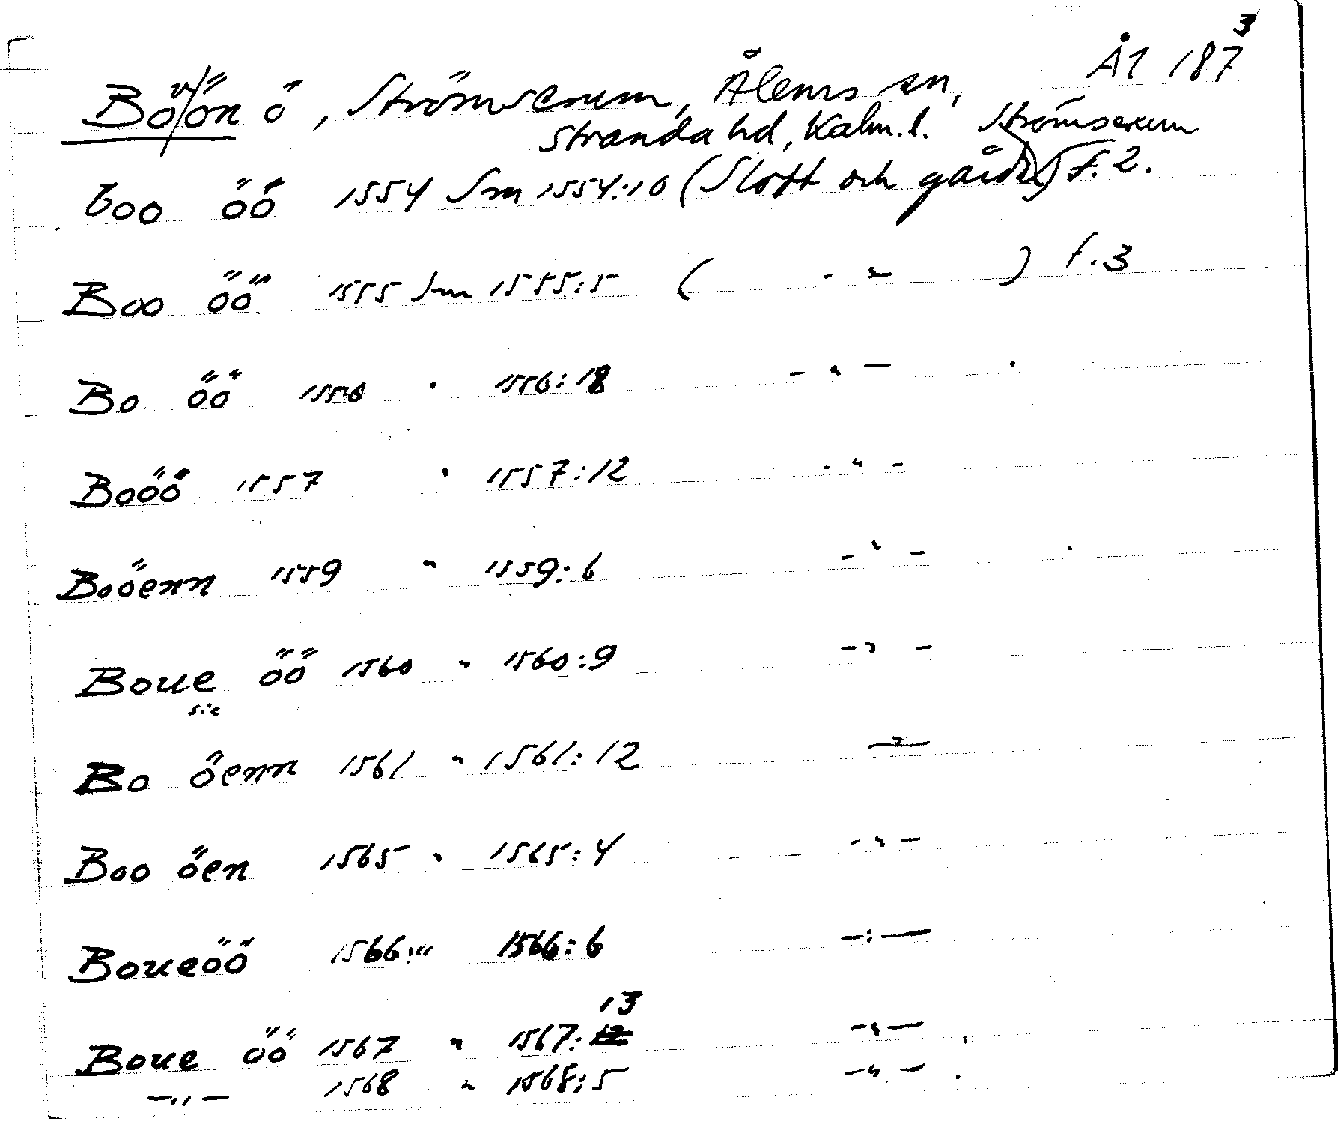 Böön ö, Strömserum, Ålems sn, Ål 187 3
Stranda hd, Kalm.l. Strömserum
boo öö 1554 Sm 1554:10 (Slott och gårdar) f.2.
Boo öö 1555 Sm 1555:5 ( - " - ) f.3
Bo öö 1556 " 1556:18 - " -
Booö 1557 " 1557:12 - " -
Booenn 1559 " 1559:6 - " -
Boue öö 1560 " 1560:9 - " -
sic
Bo öenn 1561 " 1561:12 - " -
Boo öen 1565 " 1565:4 - " -
Boueöö 1566 " 1566:6 - " -
13
Boue öö 1567 " 1567: - " -
- " - 1568 " 1568:5 - " -